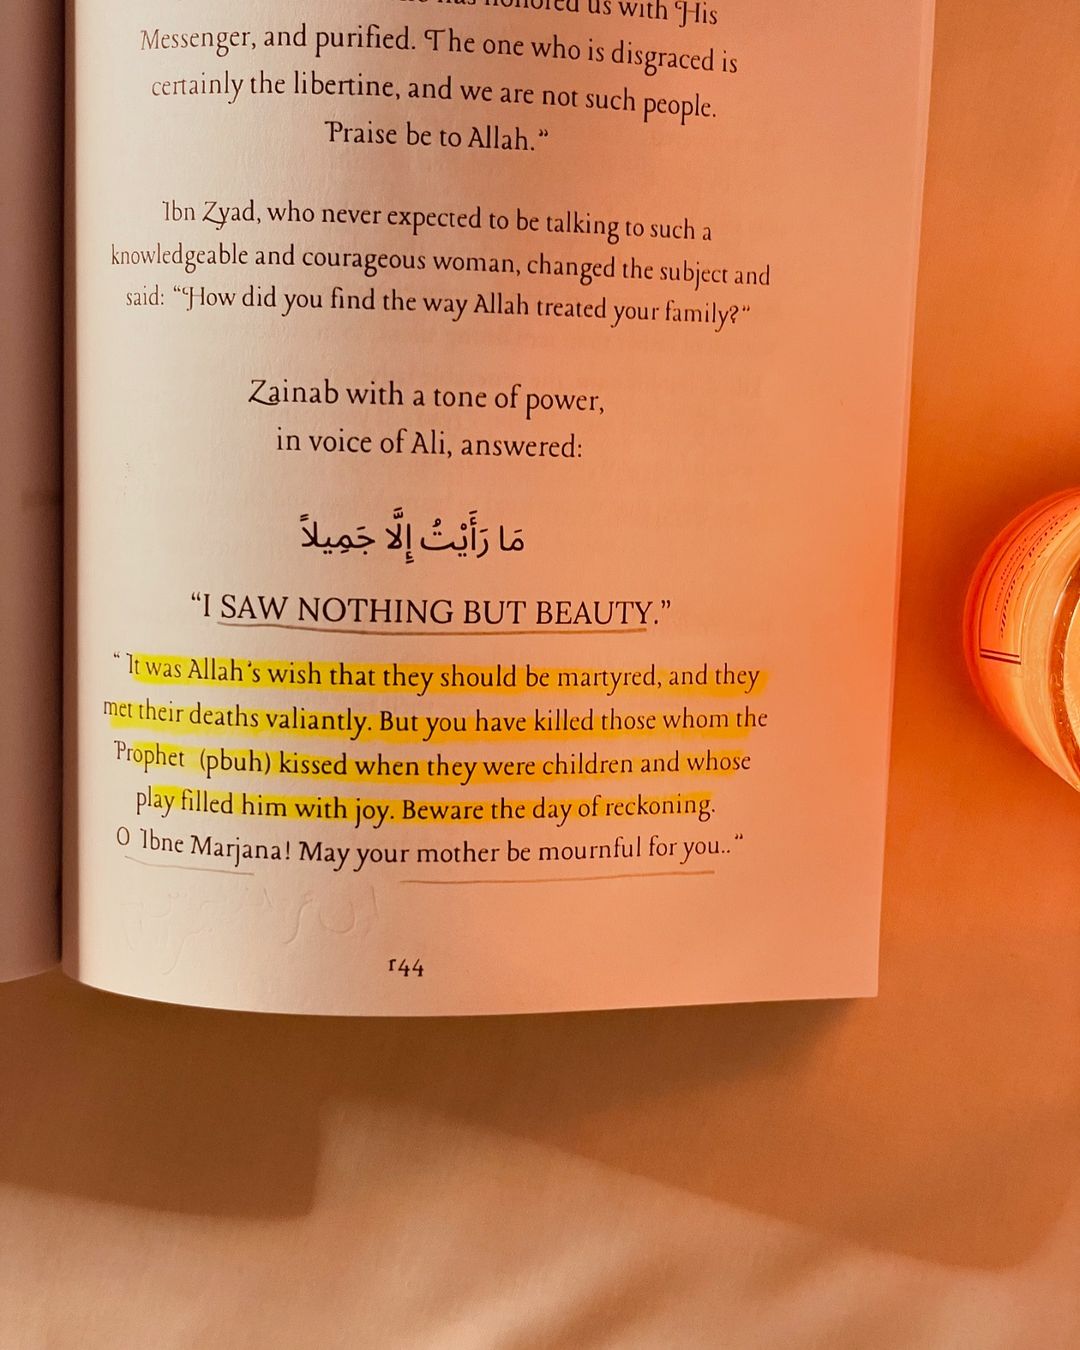 honored us with His
Messenger, and purified. The one who is disgraced is
certainly the libertine, and we are not such people.
Praise be to Allah.”
Ibn Zyad, who never expected to be talking to such a
knowledgeable and courageous woman, changed the subject and
said: “How did you find the way Allah treated your family?“
Zainab with a tone of power,
in voice of Ali, answered:
مَا رَأَيْتُ إِلَّا جَمِيلاً
“I SAW NOTHING BUT BEAUTY.”
“ It was Allah’s wish that they should be martyred, and they
met their deaths valiantly. But you have killed those whom the
Prophet (pbuh) kissed when they were children and whose
play filled him with joy. Beware the day of reckoning.
O Ibne Marjana! May your mother be mournful for you.. “
144